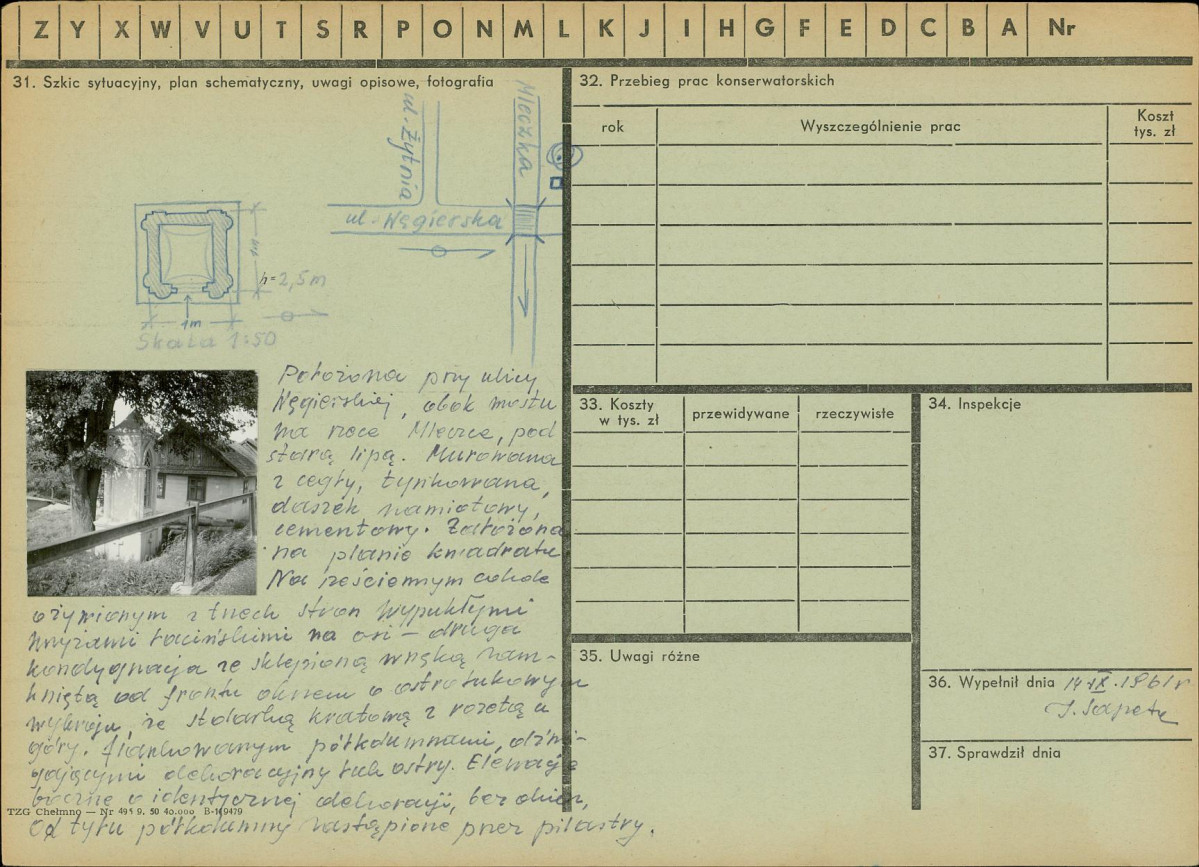 Z Y X W V U T S R P O N M L K J I H G F E D C B A Nr
31. Szkic sytuacyjny, plan schematyczny, uwagi opisowe, fotografia
ul. Żytnia
Mleczka
ul. Węgierska
h = 2,5 m
1m
Skala 1:50
Położona przy ulicy
Węgierskiej, obok mostu
na rzece Mleczce, pod
starą lipą. Murowana
z cegły, tynkowana,
daszek namiotowy,
cementowy. Założona
na planie kwadratu.
Na sześciennym cokole
ożywionym z trzech stron wypukłymi
krzyżami łacińskimi na osi – druga
kondygnacja ze sklepioną wnęką zam-
kniętą od frontu oknem o ostrołukowym
wykroju, ze stolarką kratową z rozetą u
góry. Flankowanym półkolumnami, dźwi-
gającymi dekoracyjny łuk ostry. Elewacje
boczne o identycznej dekoracji, bez okien,
Od tyłu półkolumny zastąpione przez pilastry.
TZG Chełmno — Nr 495 9. 50 40.000 B-149479
32. Przebieg prac konserwatorskich
rok
Wyszczególnienie prac
Koszt
tys. zł
33. Koszty
w tys. zł
przewidywane
rzeczywiste
34. Inspekcje
35. Uwagi różne
36. Wypełnił dnia 14.IX.1961 r
J. Sapeta
37. Sprawdził dnia